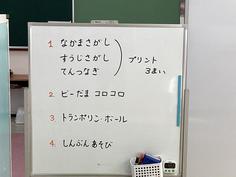 1 なかまさがし
すうじさがし
てんつなぎ
プリント
3まい
2 ビーだま コロコロ
3 トランポリン・ボール
4. しんぶんあそび